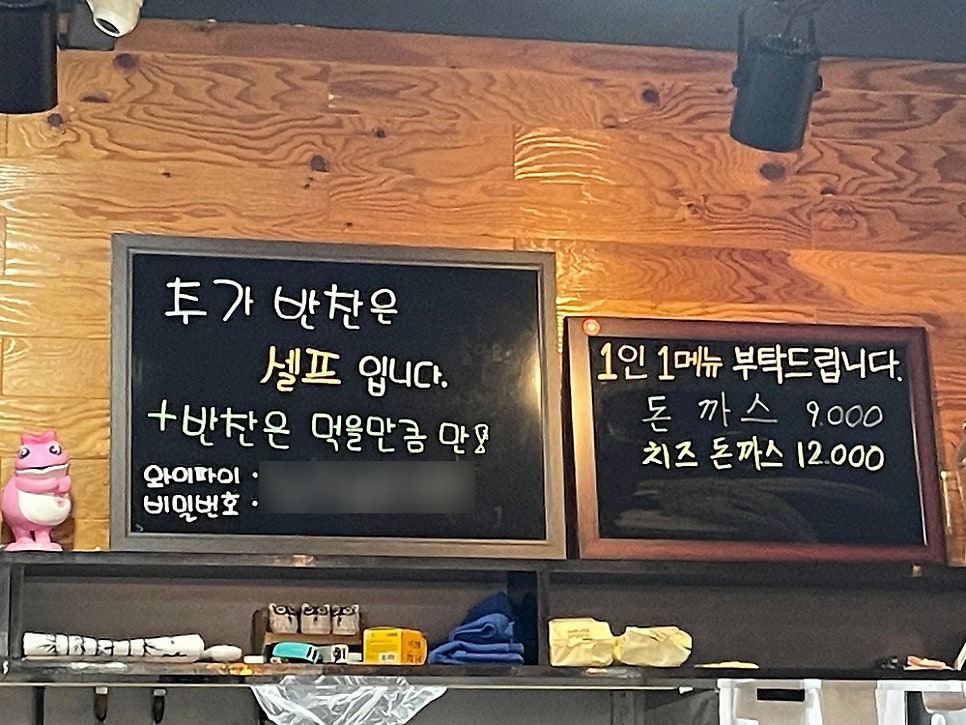 추가 반찬은
셀프 입니다.
+반찬은 먹을만큼 만!
와이파이 :
비밀번호 :
1인 1메뉴 부탁드립니다.
돈 까스 9.000
치즈 돈까스 12.000